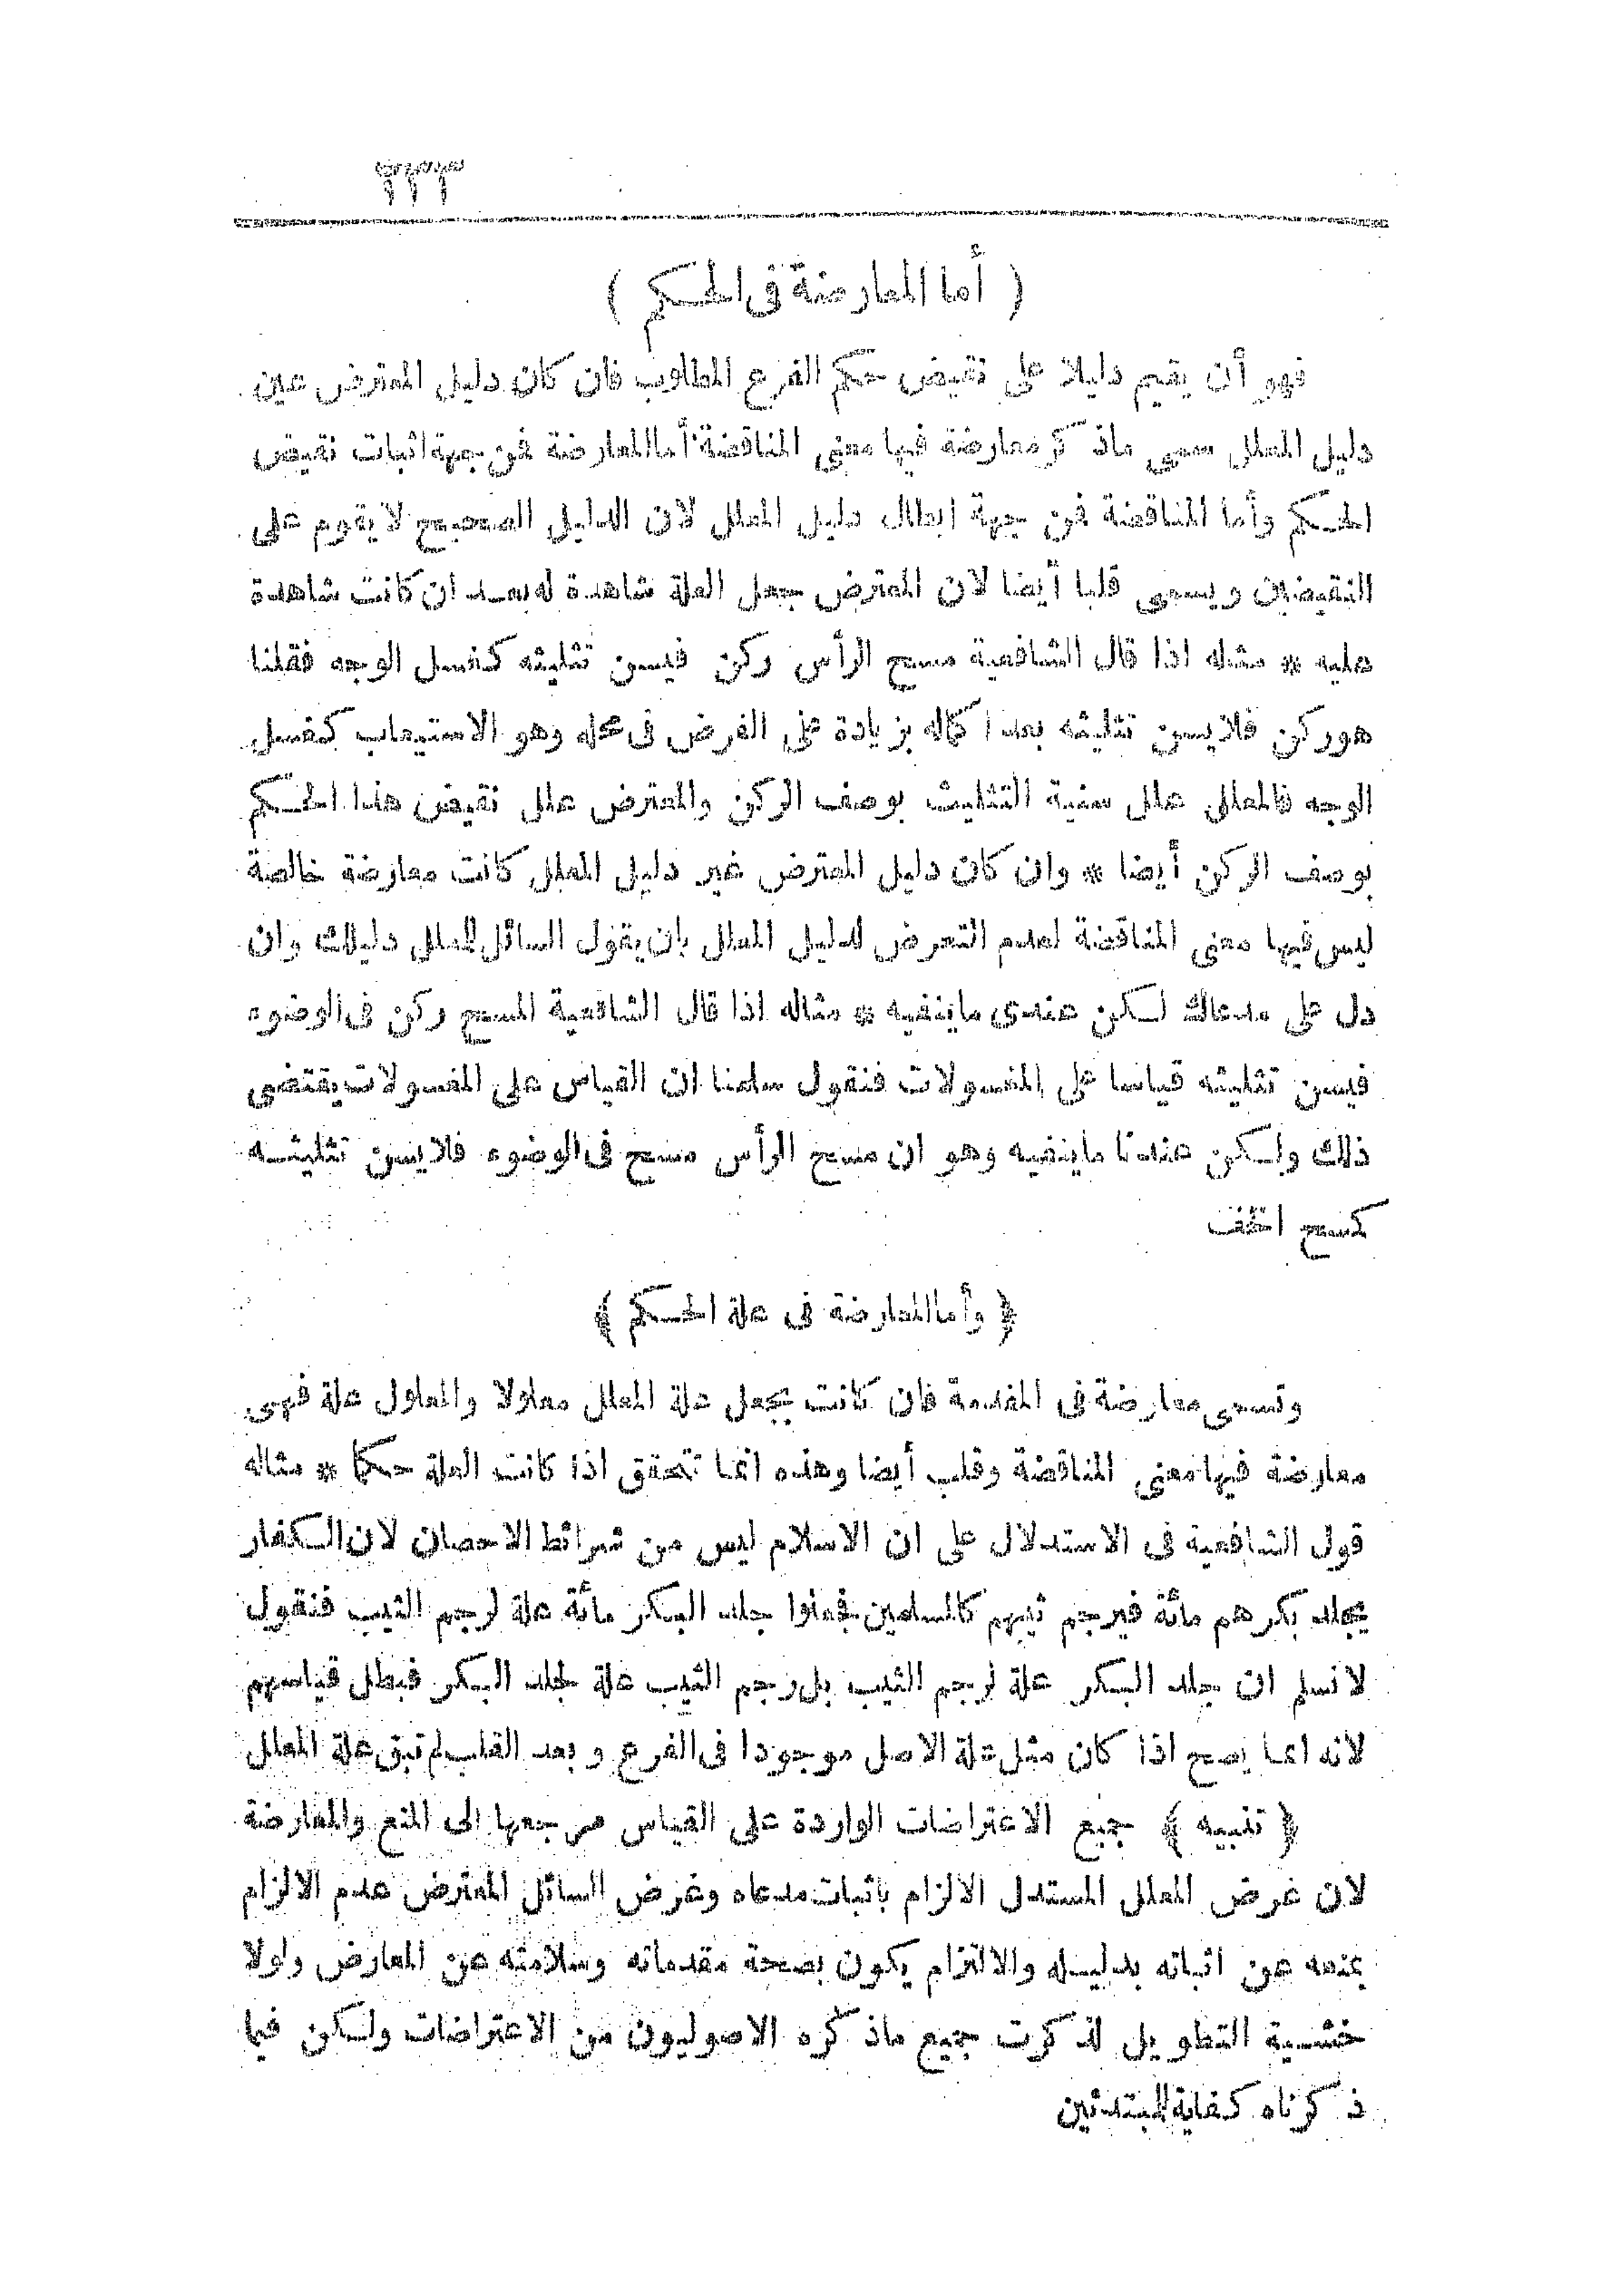 ٢٣٣
( أما المعارضة فى الحكم )
فهو أن يقيم دليلا على نقيض حكم الفرع المطلوب فان كان دليل المعترض عين
دليل المعلل سمى ماذكر معارضة فيها معنى المناقضة أما المعارضة فمن جهة اثبات نقيض
الحكم وأما المناقضة فمن جهة ابطال دليل المعلل لان الدليل الصحيح لا يقوم على
النقيضين ويسمى قلبا أيضا لان المعترض جعل العلة شاهدة له بعد ان كانت شاهدة
عليه * مثله اذا قال الشافعية مسح الرأس ركن فيسن تثليثه كغسل الوجه فقلنا
هو ركن فلا يسن تثليثه بعد اكماله بزيادة على الفرض فى محله وهو الاستيعاب كغسل
الوجه فالمعلل علل سنية التثليث بوصف الركن والمعترض علل نقيض هذا الحكم
بوصف الركن أيضا * وان كان دليل المعترض غير دليل المعلل كانت معارضة خالصة
ليس فيها معنى المناقضة لعدم التعرض لدليل المعلل بان يقول السائل للمعلل دليلك وان
دل على مدعاك لكن عندى ماينفيه * مثاله اذا قال الشافعية المسح ركن فى الوضوء
فيسن تثليثه قياسا على المغسولات فنقول سلمنا ان القياس على المغسولات يقتضى
ذلك ولكن عندنا ماينفيه وهو ان مسح الرأس مسح فى الوضوء فلا يسن تثليثه
كمسح الخف
﴿ وأما المعارضة فى علة الحكم ﴾
وتسمى معارضة فى المقدمة فان كانت بجعل علة المعلل معلولا والمعلول علة فهى
معارضة فيها معنى المناقضة وقلب أيضا وهذه انما تتحقق اذا كانت العلة حكما * مثاله
قول الشافعية فى الاستدلال على ان الاسلام ليس من شرائط الاحصان لان الكفار
يجلد بكرهم مائة فيرجم ثيبهم كالمسلمين فجعلوا جلد البكر مائة علة لرجم الثيب فنقول
لا نسلم ان جلد البكر علة لرجم الثيب بل رجم الثيب علة لجلد البكر فبطل قياسهم
لانه انما يصح اذا كان مثل علة الاصل موجودا فى الفرع وبعد القلب لم تبق علة المعلل
﴿ تنبيه ﴾ جميع الاعتراضات الواردة على القياس مرجعها الى المنع والمعارضة
لان غرض المعلل المستدل الالزام باثبات مدعاه وغرض السائل المعترض عدم الالزام
بمنعه عن اثباته بدليله والالتزام يكون بصحة مقدماته وسلامته عن المعارض ولولا
خشية التطويل لذكرت جميع ماذكره الاصوليون من الاعتراضات ولكن فيما
ذكرناه كفاية للمبتدئين